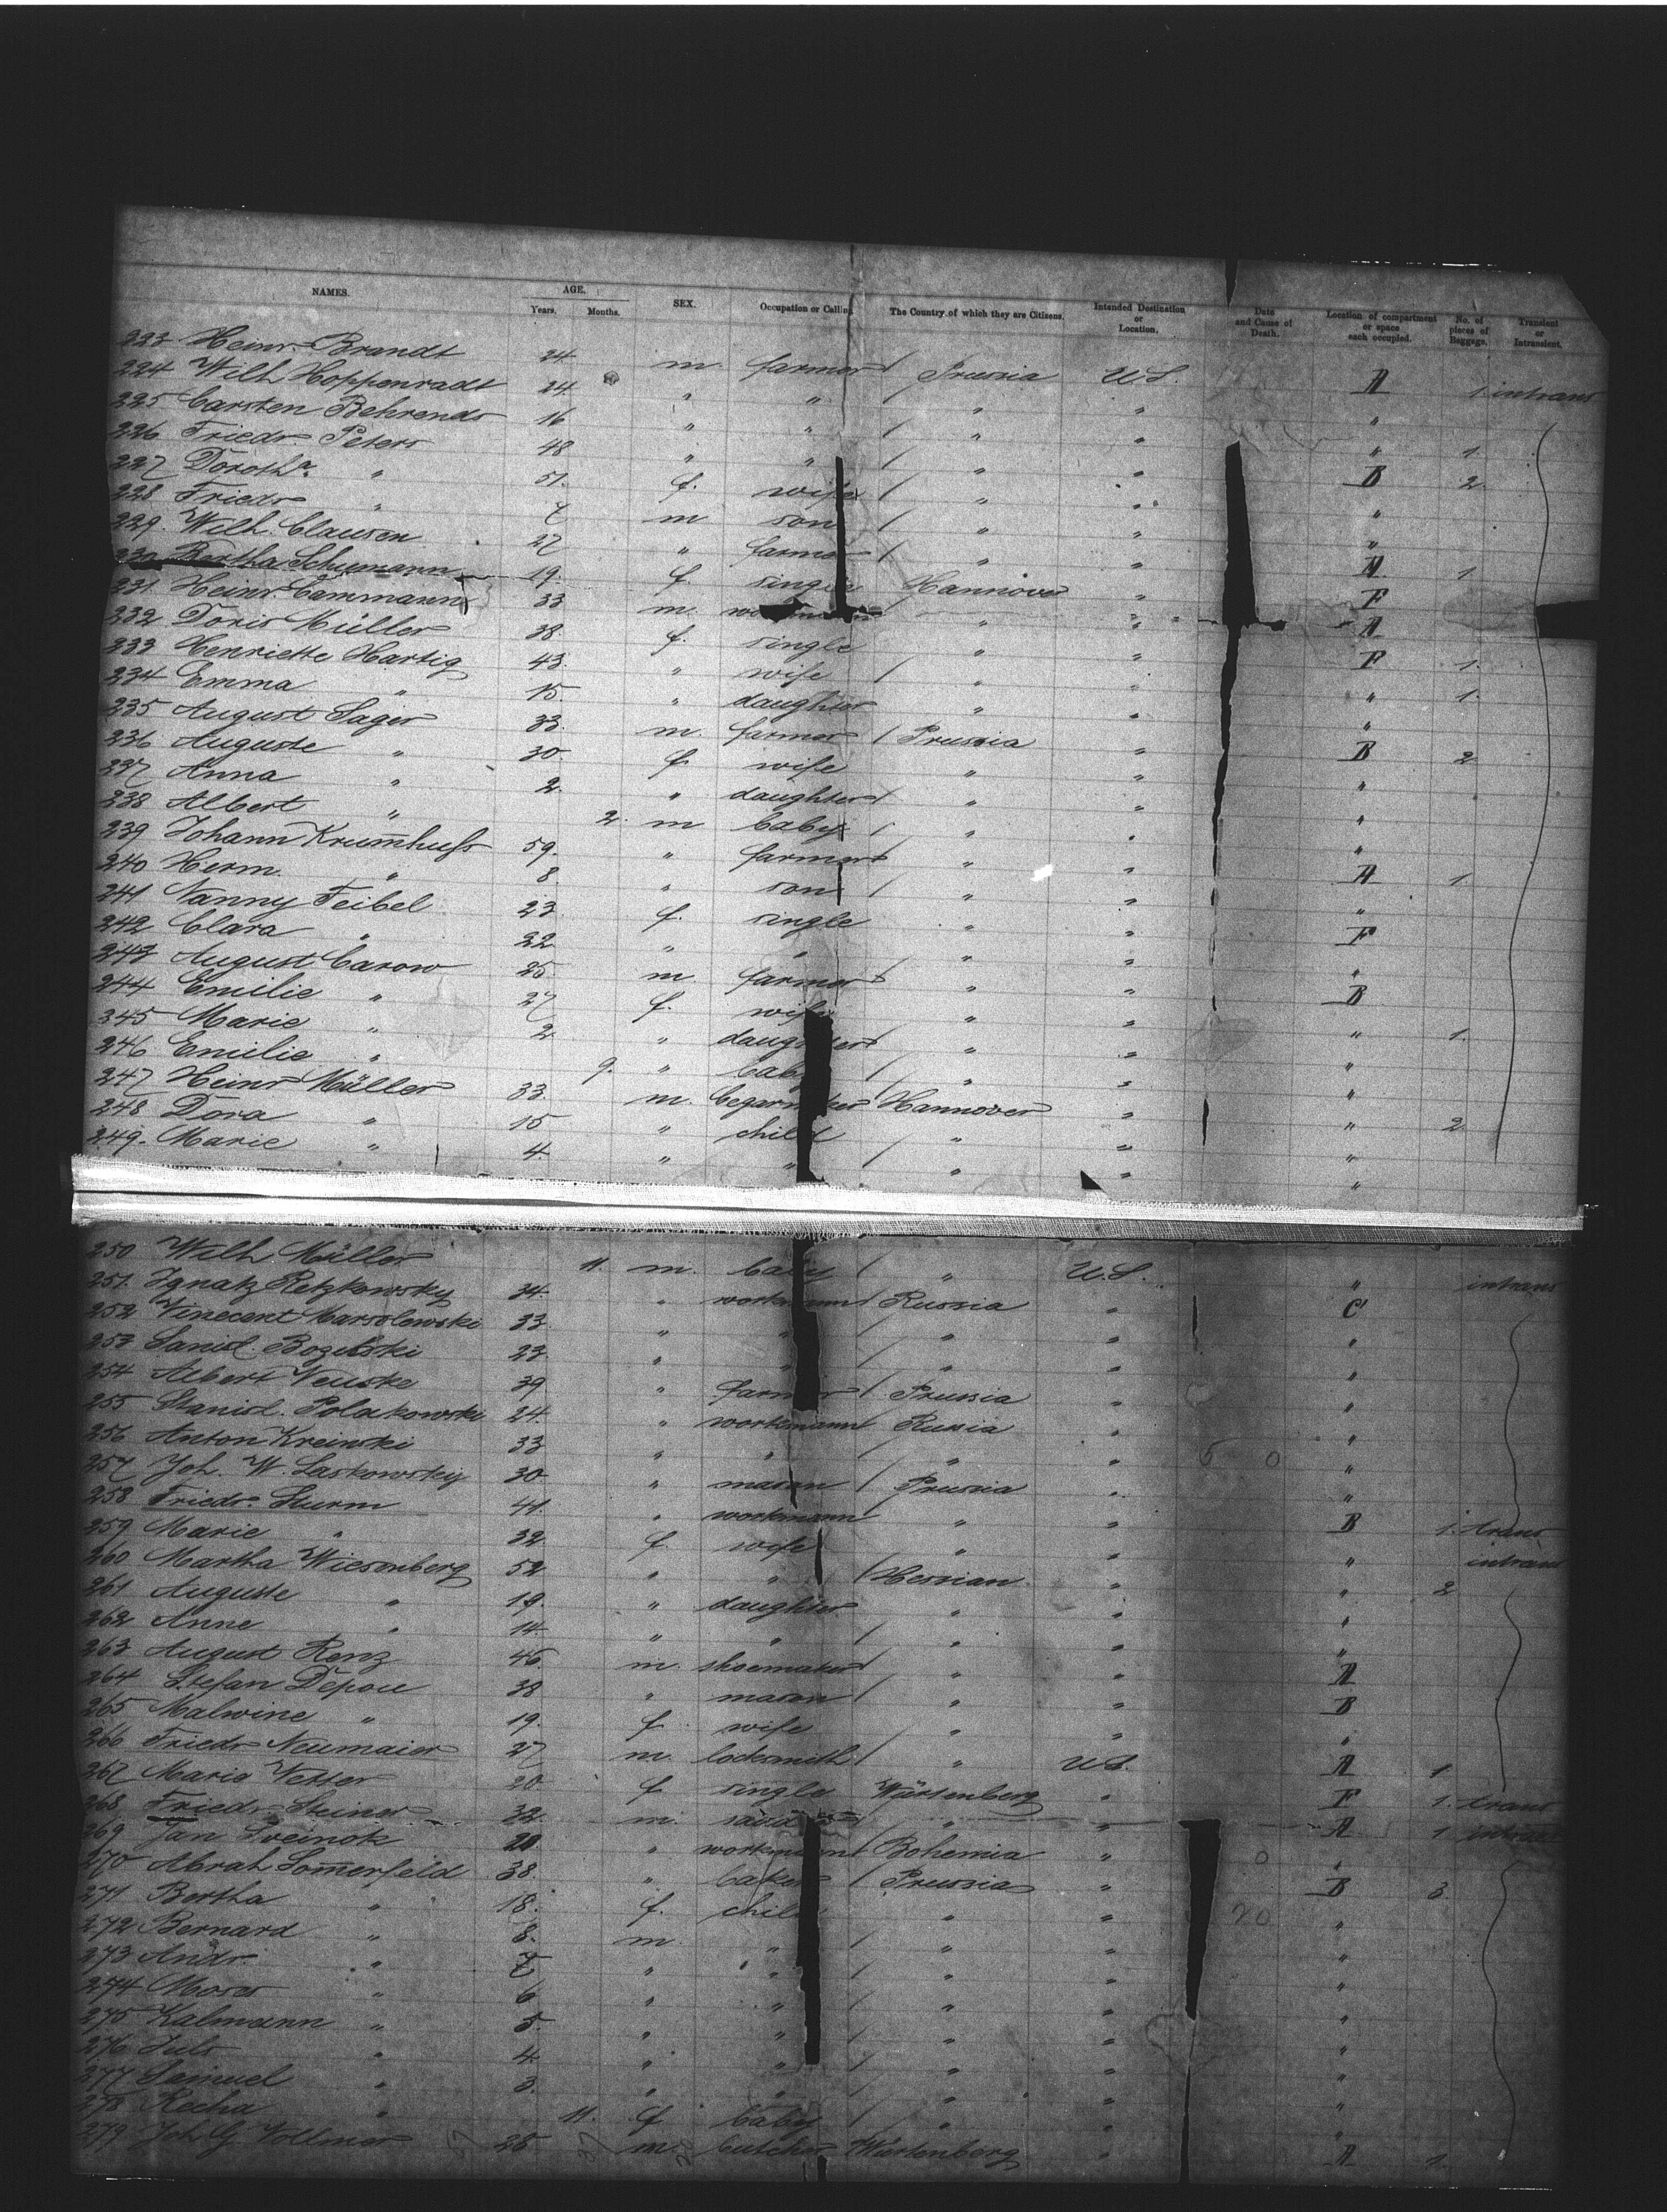 NAMES. AGE. Years. Months. SEX. Occupation or Calling The Country of which they are Citizens. Intended Destination or Location. Date and Cause of Death. Location of compartment or space each occupied. No. of pieces of Baggage. Transient or Intransient.
223 Heinr. Brandt 24 m. farmer / Prussia U.S. A 1. intrans
224 Wilh Hoppenradt 24 " " / " " "
225 Carsten Behrends 16 " " / " " " 1.
226 Friedr. Peters 48 " " / " " B 2.
227 Doroth. " 51. f. wife / " " "
228 Friedr " 7 m son / " " "
229. Wilh. Clausen 27 " farmer / " " A 1.
230 Bertha Schumann 19. f. single Hannover " F
231 Heinr. Cammann 33 m. " " A
232 Doris Müller 38. f. single " " F 1.
233 Henriette Hartig 43. " wife / " " " 1.
234 Emma " 15. " daughter " " "
235 August Sager 33. m. farmer / Prussia " B 2
236 Auguste " 30. f. wife " " "
237 Anna " 2. " daughter / " " "
238 Albert " 2. m baby / " " "
239 Johann Krum̅huss 59. " farmer " " A 1.
240 Herm. " 8. " son / " " "
241 Nanny Feibel 23 f. single " " F
242 Clara " 22 " " " " "
243 August Carow 25. m. farmer " " B
244 Emilie " 27 f. wife " " " 1.
245 Marie " 2. " daughter " " "
246 Emilie " 9. " baby / " " "
247 Heinr Müller 33. m. Hannover " " 2
248 Dora " 15 " child / " " "
249. Marie " 4. " " / " " "
250 Wilh Müller 11. m. baby / " U.S. " intrans
251. Ignatz Retzkowsky 34. " workmann / Russia " C
252 Vinecent Marsolewski 33 " " / " " "
253 Sanisl. 23. " " / " " "
254 Albert Venske 39 " farmer / Prussia " "
255 Stanisl. Polakowski 24. " workmann Russia " "
256 Anton Kreinski 33 " " / " " "
257 Joh. W. Laskowsky 30 " mason / Prussia " "
258 Friedr. Sturm 41. " workmann " " B 1. trans
259 Marie " 32. f. wife " " " intrans
260 Martha Wiesenberg 52 " " / Hessian " " 2
261 Auguste " 19. " daughter " " "
262 Anne " 14. " " / " " "
263 August Renz 45. m. shoemaker / " " A
264 Stefan 38 " mason / " " B
265 Malwine " 19. f. wife / " " "
266 Friedr Neumaier 27 m. locksmith / " U.S. A 1.
267 Marie Vetter 20 f single Würtenberg " F 1. trans
268 Friedr Steiner 32. m. " " A 1 intrans
269 Jan 20 " workmann / Bohemia " "
270 Abrah Som̅erfeld 38. " baker / Prussia " B 3.
271 Bertha " 18. f. child " " "
272 Bernard " 8. m. " / " " "
273 Andr. " 7 " " / " " "
274 Moses " 6 " " / " " "
275 Kalmann " 5. " " / " " "
276 Juls " 4. " " / " " "
277 Samuel " 3. " " / " " "
278 Recha " 11. f baby / " " "
279 Joh. G. Vollmer 25 m. butcher Würtenberg " A 1.